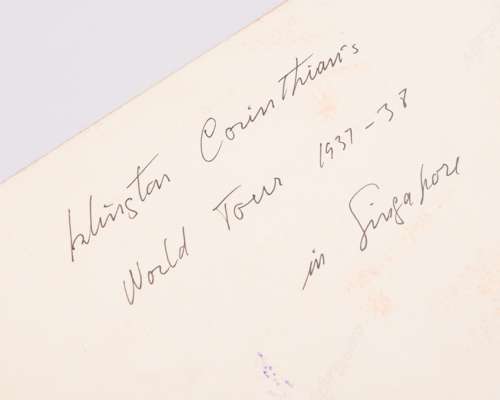 Islington Corinthians
World Tour 1937-38
in Singapore